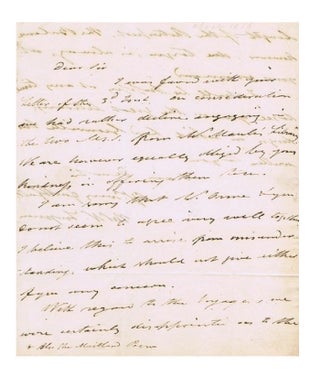 Dear Sir
I was favd with your
letter of the 3d Inst. on consideration
we had rather decline engaging in
the two M.S. from Mr
We are however equally obliged by your
kindness in offering them
I am sorry that Mr & you
do not seem to agree very well together
I believe this to arise from misunder
standing, which should not give either
of you any concern.
With regard to the Voyages we
were certainly disappointed as to the
& the Maitland